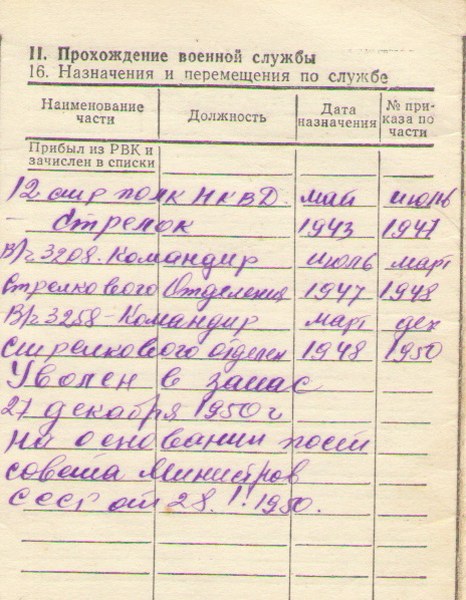 II. Прохождение военной службы
16. Назначения и перемещения по службе
Наименование части Должность Дата назначения № приказа по части
Прибыл из РВК и
зачислен в списки
12 стр полк НКВД. май июль
Стрелок 1943 1947
В/ч 3208. Командир июль март
Стрелкового Отделения 1947 1948
В/ч 3258 - Командир март дек
стрелкового отделен 1948 1950
Уволен в запас
27 декабря 1950 г
на основании пост
совета Министров
СССР от 28. 1950.